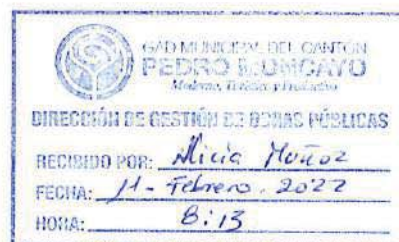 GAD MUNICIPAL DEL CANTÓN
PEDRO MONCAYO
DIRECCIÓN DE GESTIÓN DE OBRAS PÚBLICAS
RECIBIDO POR: Alicia Muñoz
FECHA: 11 - Febrero. 2022
HORA: 8:13